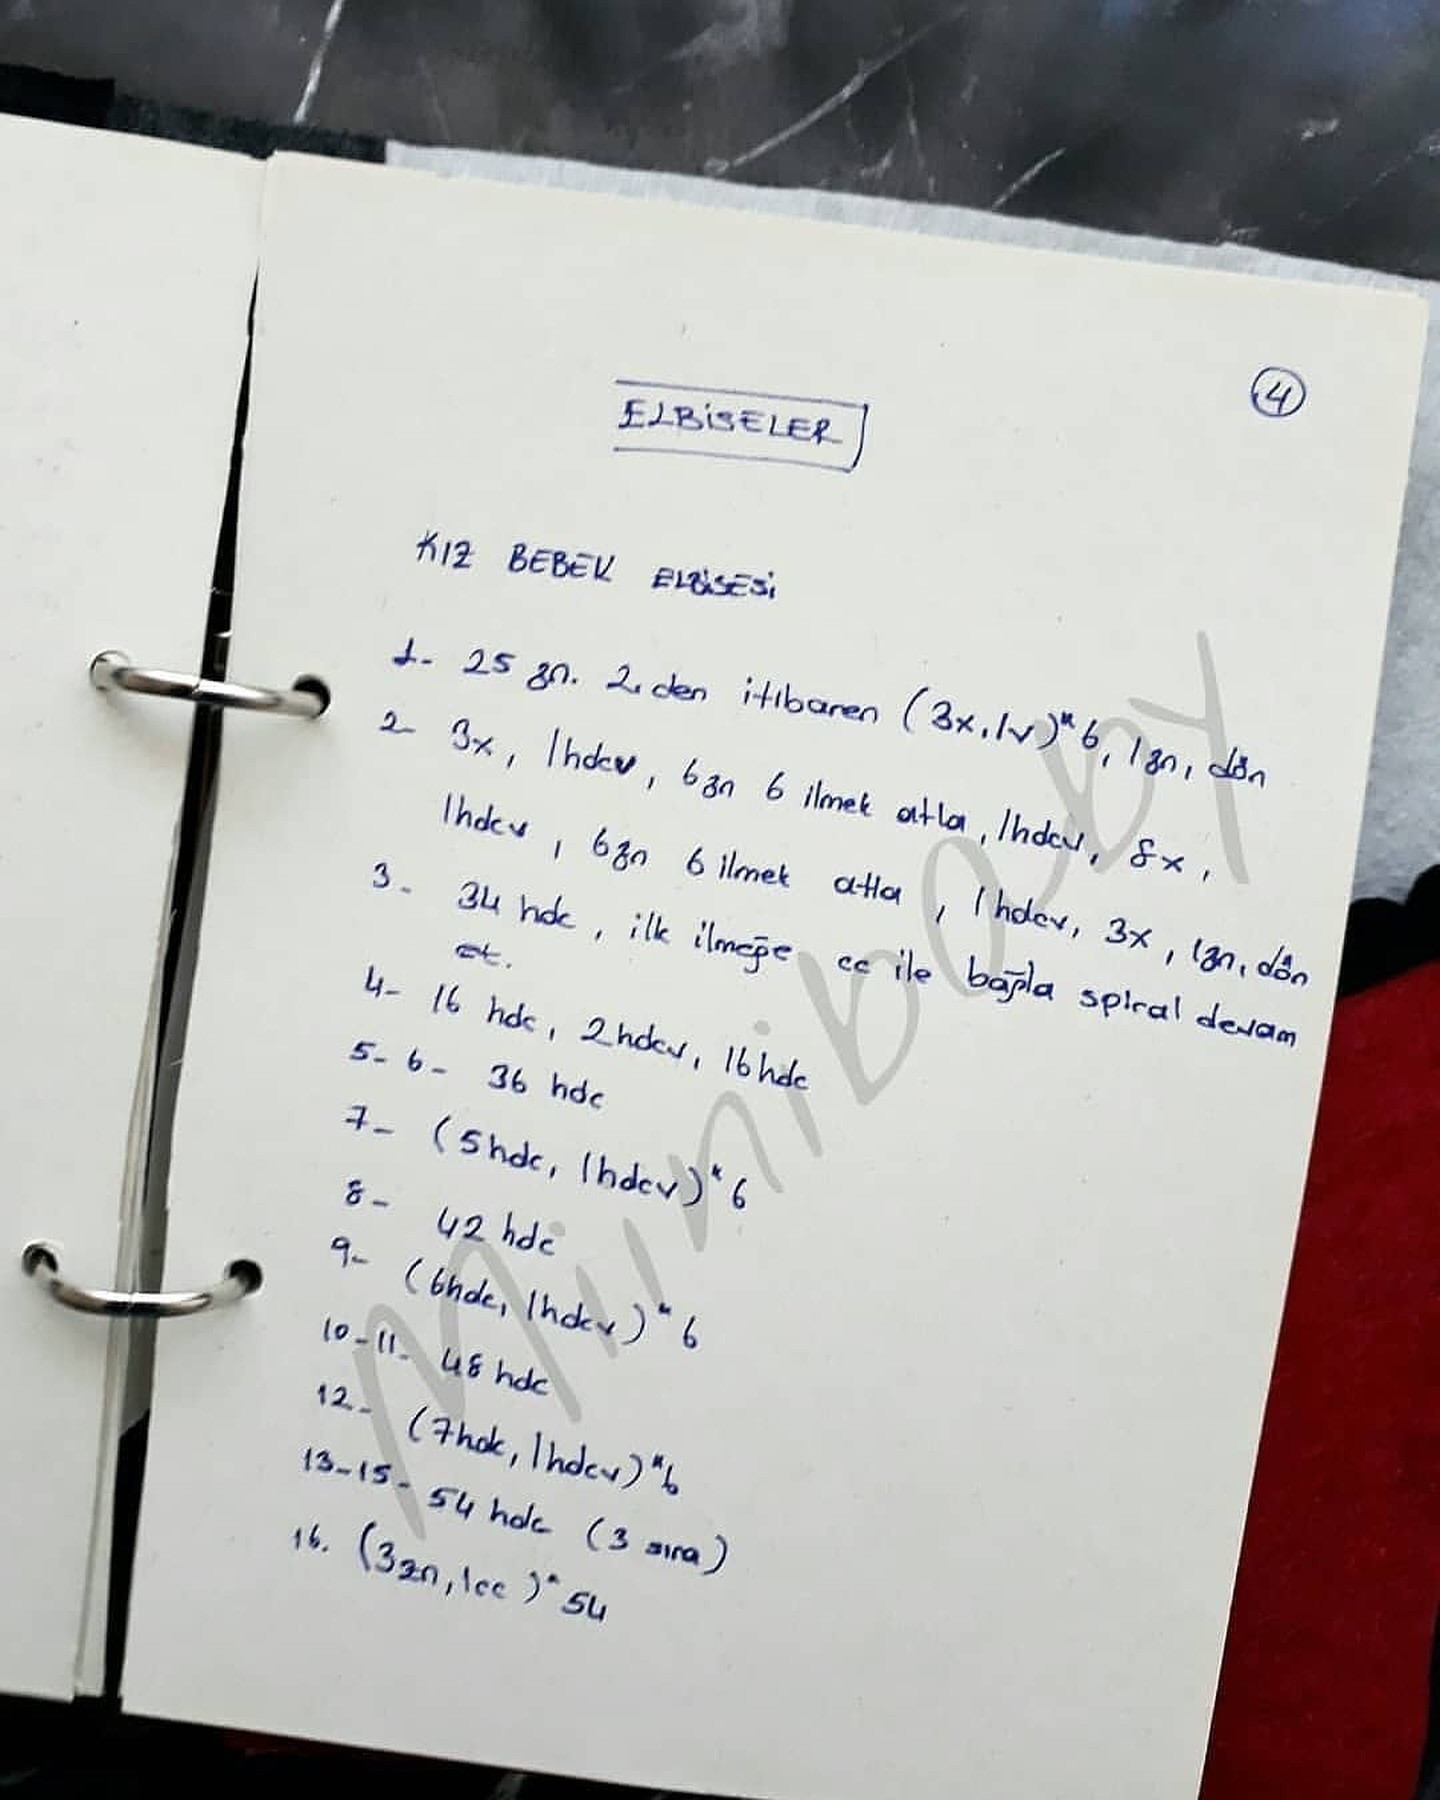 4
ELBİSELER
KIZ BEBEK ELBİSESİ
1- 25 zn. 2. den itibaren (3x, 1v)*6, 1zn, dön
2- 3x, 1hdcv, 6zn 6 ilmek atla, 1hdcv, 8x,
1hdcv, 6zn 6 ilmek atla, 1hdcv, 3x, 1zn, dön
3- 34 hdc, ilk ilmeğe cc ile bağla spiral devam
et.
4- 16 hdc, 2hdcv, 16hdc
5-6- 36 hdc
7- (5hdc, 1hdcv)*6
8- 42 hdc
9- (6hdc, 1hdcv)*6
10-11- 48 hdc
12- (7hdc, 1hdcv)*6
13-15- 54 hdc (3 sıra)
16. (3zn, 1cc)*54
Miinibaby